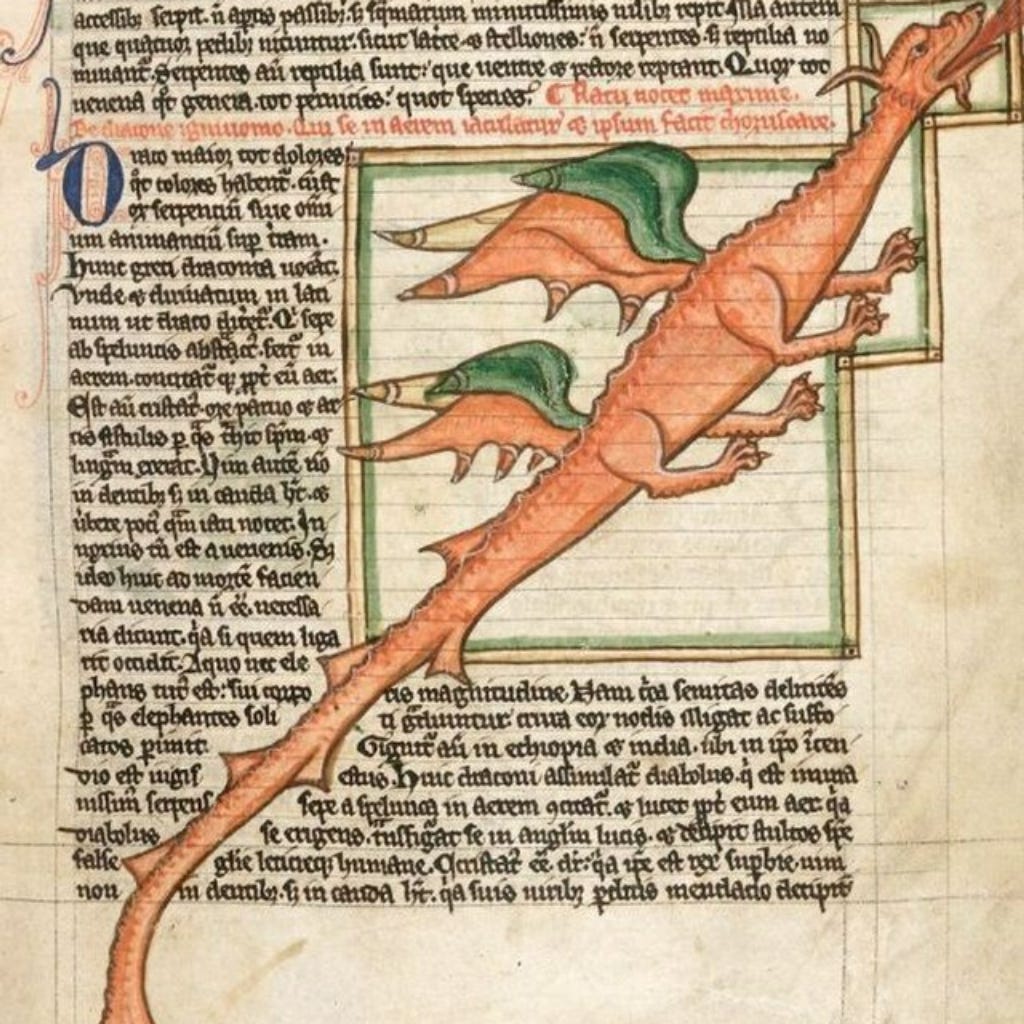 accessib; serpit. n̄ aptis passib; s; sq̄marum minutissimis nisib; repit. Illa autem
que quatuor pedib; nituntur. sicut lac̄te ⁊ stelliones: n̄ serpentes. s; reptilia no
minant̄. Serpentes au̅ reptilia sunt: que uentre ⁊ pectore reptant. Quoꝝ tot
uenena qͦt genera. tot pernicies: quot species.
De dracone igniuomo. Qui se in aerem iaculatur ⁊ ipsum facit choruscare.
Draco maior tot dolores
qͦt colores habent̄.
or serpentiū siue om̄i
um animantiū sup̄ t̄ram.
hunc greci draconta uocāt.
Vnde ⁊ diriuatum in lati
num ut draco
ab speluncis abst̄ct̄. fert̄ in
aerem. concitat̄ qꝫ ꝓpt̄ eū aer.
Est au̅ cristat̄. ore paruo ⁊ ar
tis fistulis ꝑ q̄s t̄hit sp̄m. ⁊
lingm̄ exerat. Uim aute̅ nō
in dentib; s; in cauda h̄t. ⁊
In
noxius t̄n est a uenenis. S;
ideo huic ad morte̅ facien
dam uenena n̄ e̅e̅. necessa
ria dicunt. q̇a si quem liga
rit occidit. A quo nec ele
phans tut̄ est: sui corpo ris magnitudine. Nam c̄ca semitas delitēs
ꝑ q̄s elephantes soli ti gͣdiuntur. crura eoꝝ nodis illigat ac suffo
catos ꝑimit. Gignit̄ au̅ in ethiopia ⁊ india. ubi in ip̄o īcen
dio est iugis estus. Huic draconi assimilat̄ diabolus. q̇ est
nissim̄ serpens. sepe a spelunca in aerem ɔcitat̄. ⁊ lucet ꝓpt̄ eum aer. q̇a
diabolus se erigens. t̄nsfigͣt se in anglm̄ lucis. ⁊ decipit stultos spe
false gl̄ie leticieqꝫ humane. Cristat̄ e̅e̅. dr̄. q̇a ip̄e est rex supb̄ie. uim
non in dentib; s; in cauda h̄t. q̇a suis uirib; ꝑditis mendacio decipit